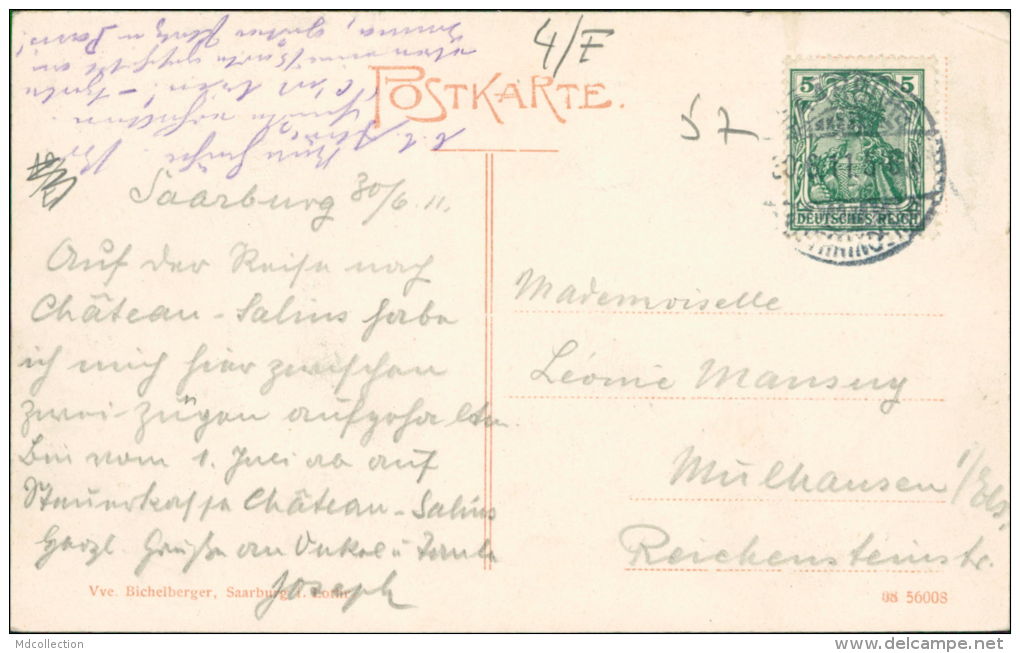 4/E
POSTKARTE.
57
5 5
DEUTSCHES REICH
Saarburg 30/6. 11.
Auf der Reise nach
Château-Salins habe
ich mich hier zwischen
zwei Zügen aufgehalten.
Bin vom 1. Juli ab auf
Steuerkasse Château-Salins
Herzl. Grüße an Onkel u Tante
Joseph
Mademoiselle
Léonie Mansuy
Mülhausen i/Els.
Reichensteinstr.
Vve. Bichelberger, Saarburg i. Lothr.
08 56008
Mdcollection
www.delcampe.net